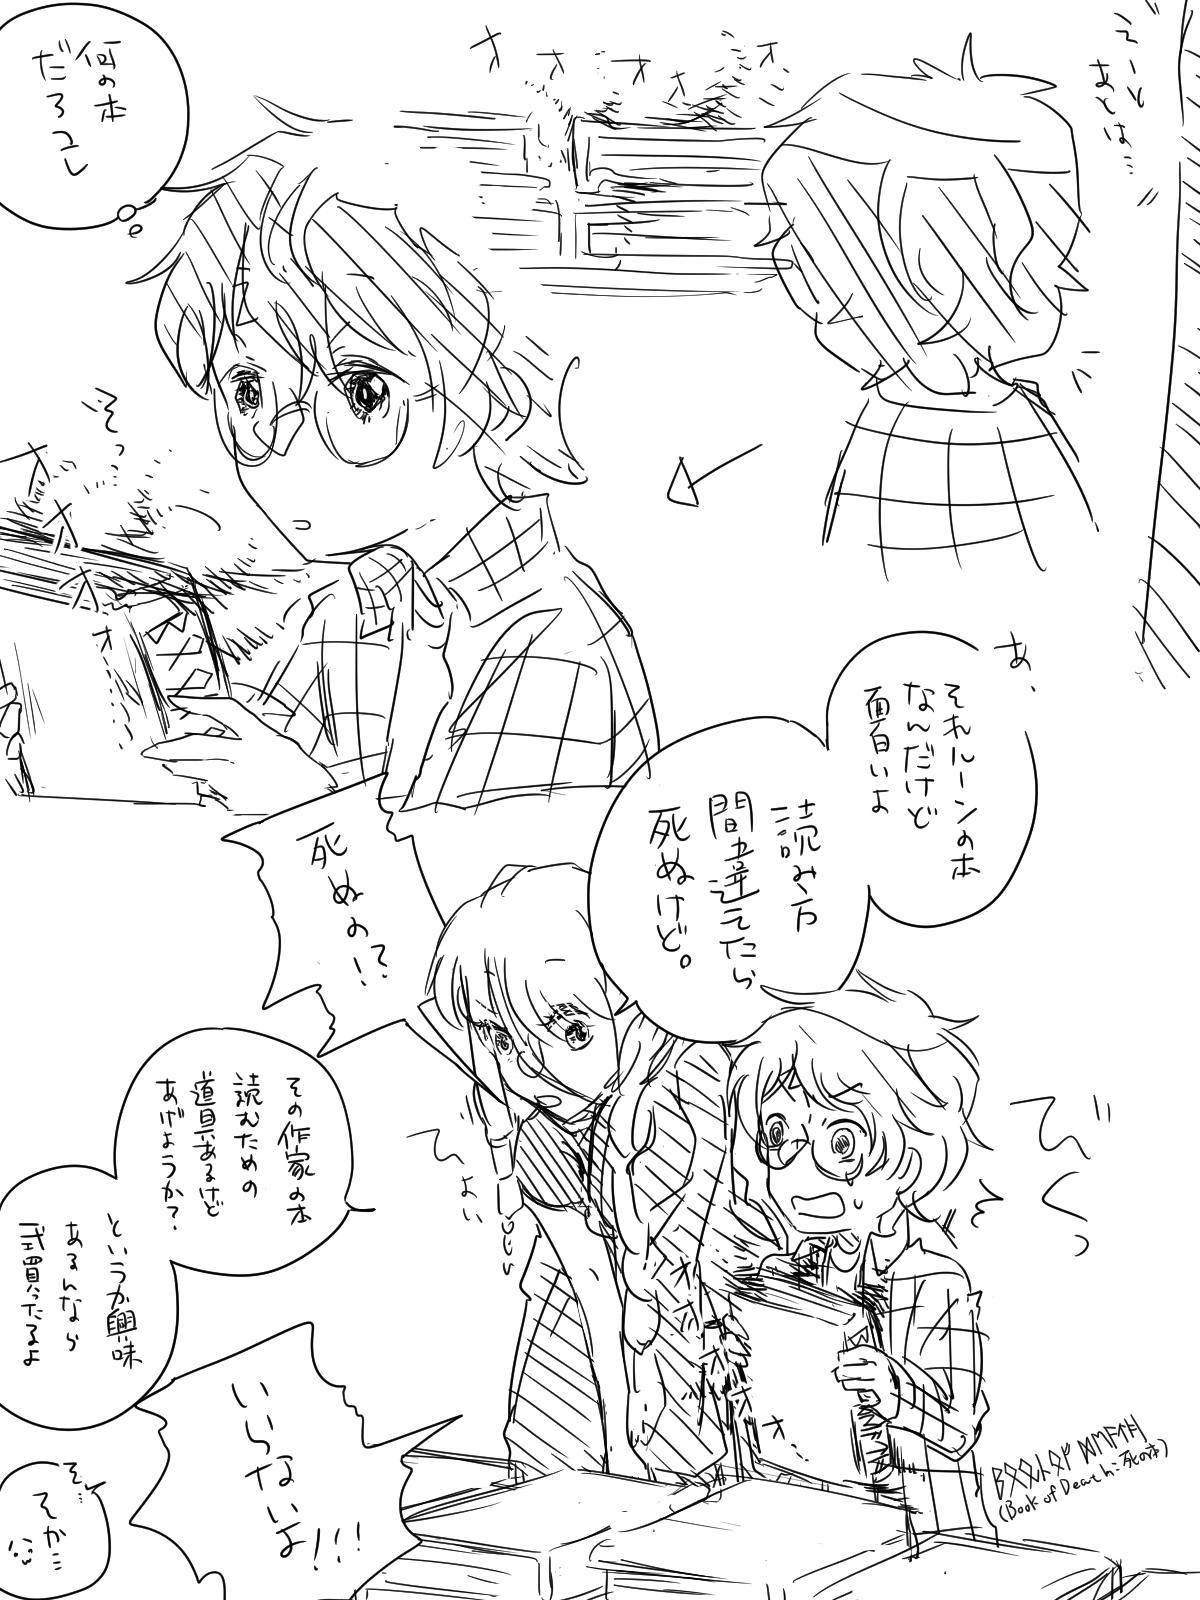 えーと
あとは…
何の本
だろコレ
そっ…
オ
オ
オ
オ
オ
あ、
それルーンの本
なんだけど
面白いよ
読み方
間違えたら
死ぬけど。
死ぬの!?
びくっ
ひょい
その作家の本
読むための
道具あるけど
あげようか?
というか興味
あるんなら
一式買ったるよ
いらないよ!!!
そ…
そか…
ᛒᛟᛟᚲ ᛟᚠ ᛞᛖᚨᛏᚺ
(Book of Death:死の本)